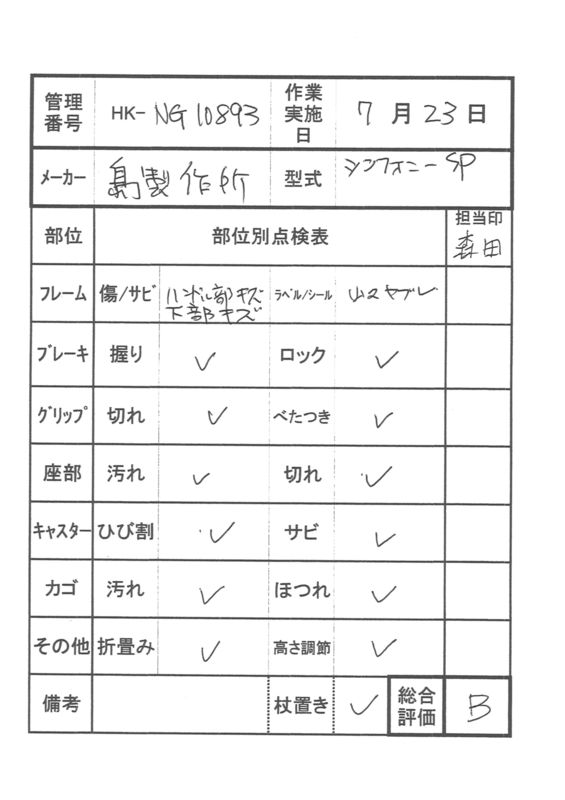 管理番号 HK- NG10893 作業実施日 7月23日
メーカー 島製作所 型式 シンフォニーSP
部位 部位別点検表 担当印 森田
フレーム 傷/サビ ハンドル部キズ 下部キズ ラベル/シール ヤブレ
ブレーキ 握り ✓ ロック ✓
グリップ 切れ ✓ べたつき ✓
座部 汚れ ✓ 切れ ✓
キャスター ひび割 ✓ サビ ✓
カゴ 汚れ ✓ ほつれ ✓
その他 折畳み ✓ 高さ調節 ✓
備考 杖置き ✓ 総合評価 B